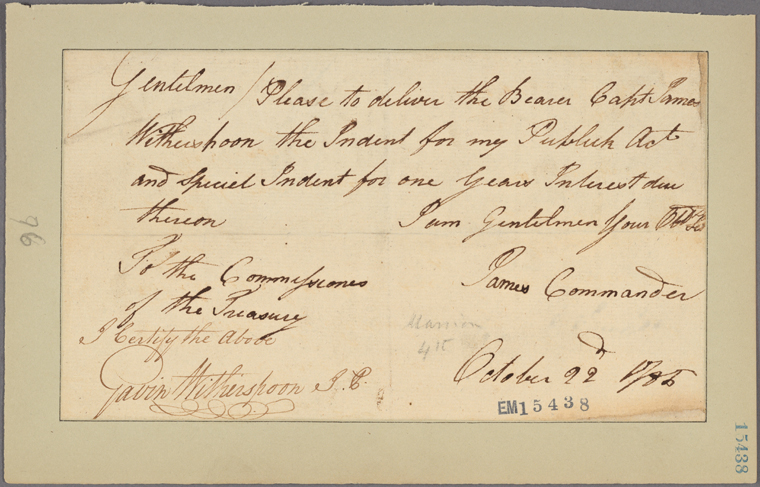 Gentelmen / Please to deliver the Bearer Capt James
Witherspoon the Indent for my Publick Act
and Speciel Indent for one Years Interest due
thereon I am Gentelmen Your
To the Commissiones
of the Treasury
James Commander
I Certify the Above
Gavin Witherspoon J.P.
Marion
4
October 22d 1785
EM15438
96
15438